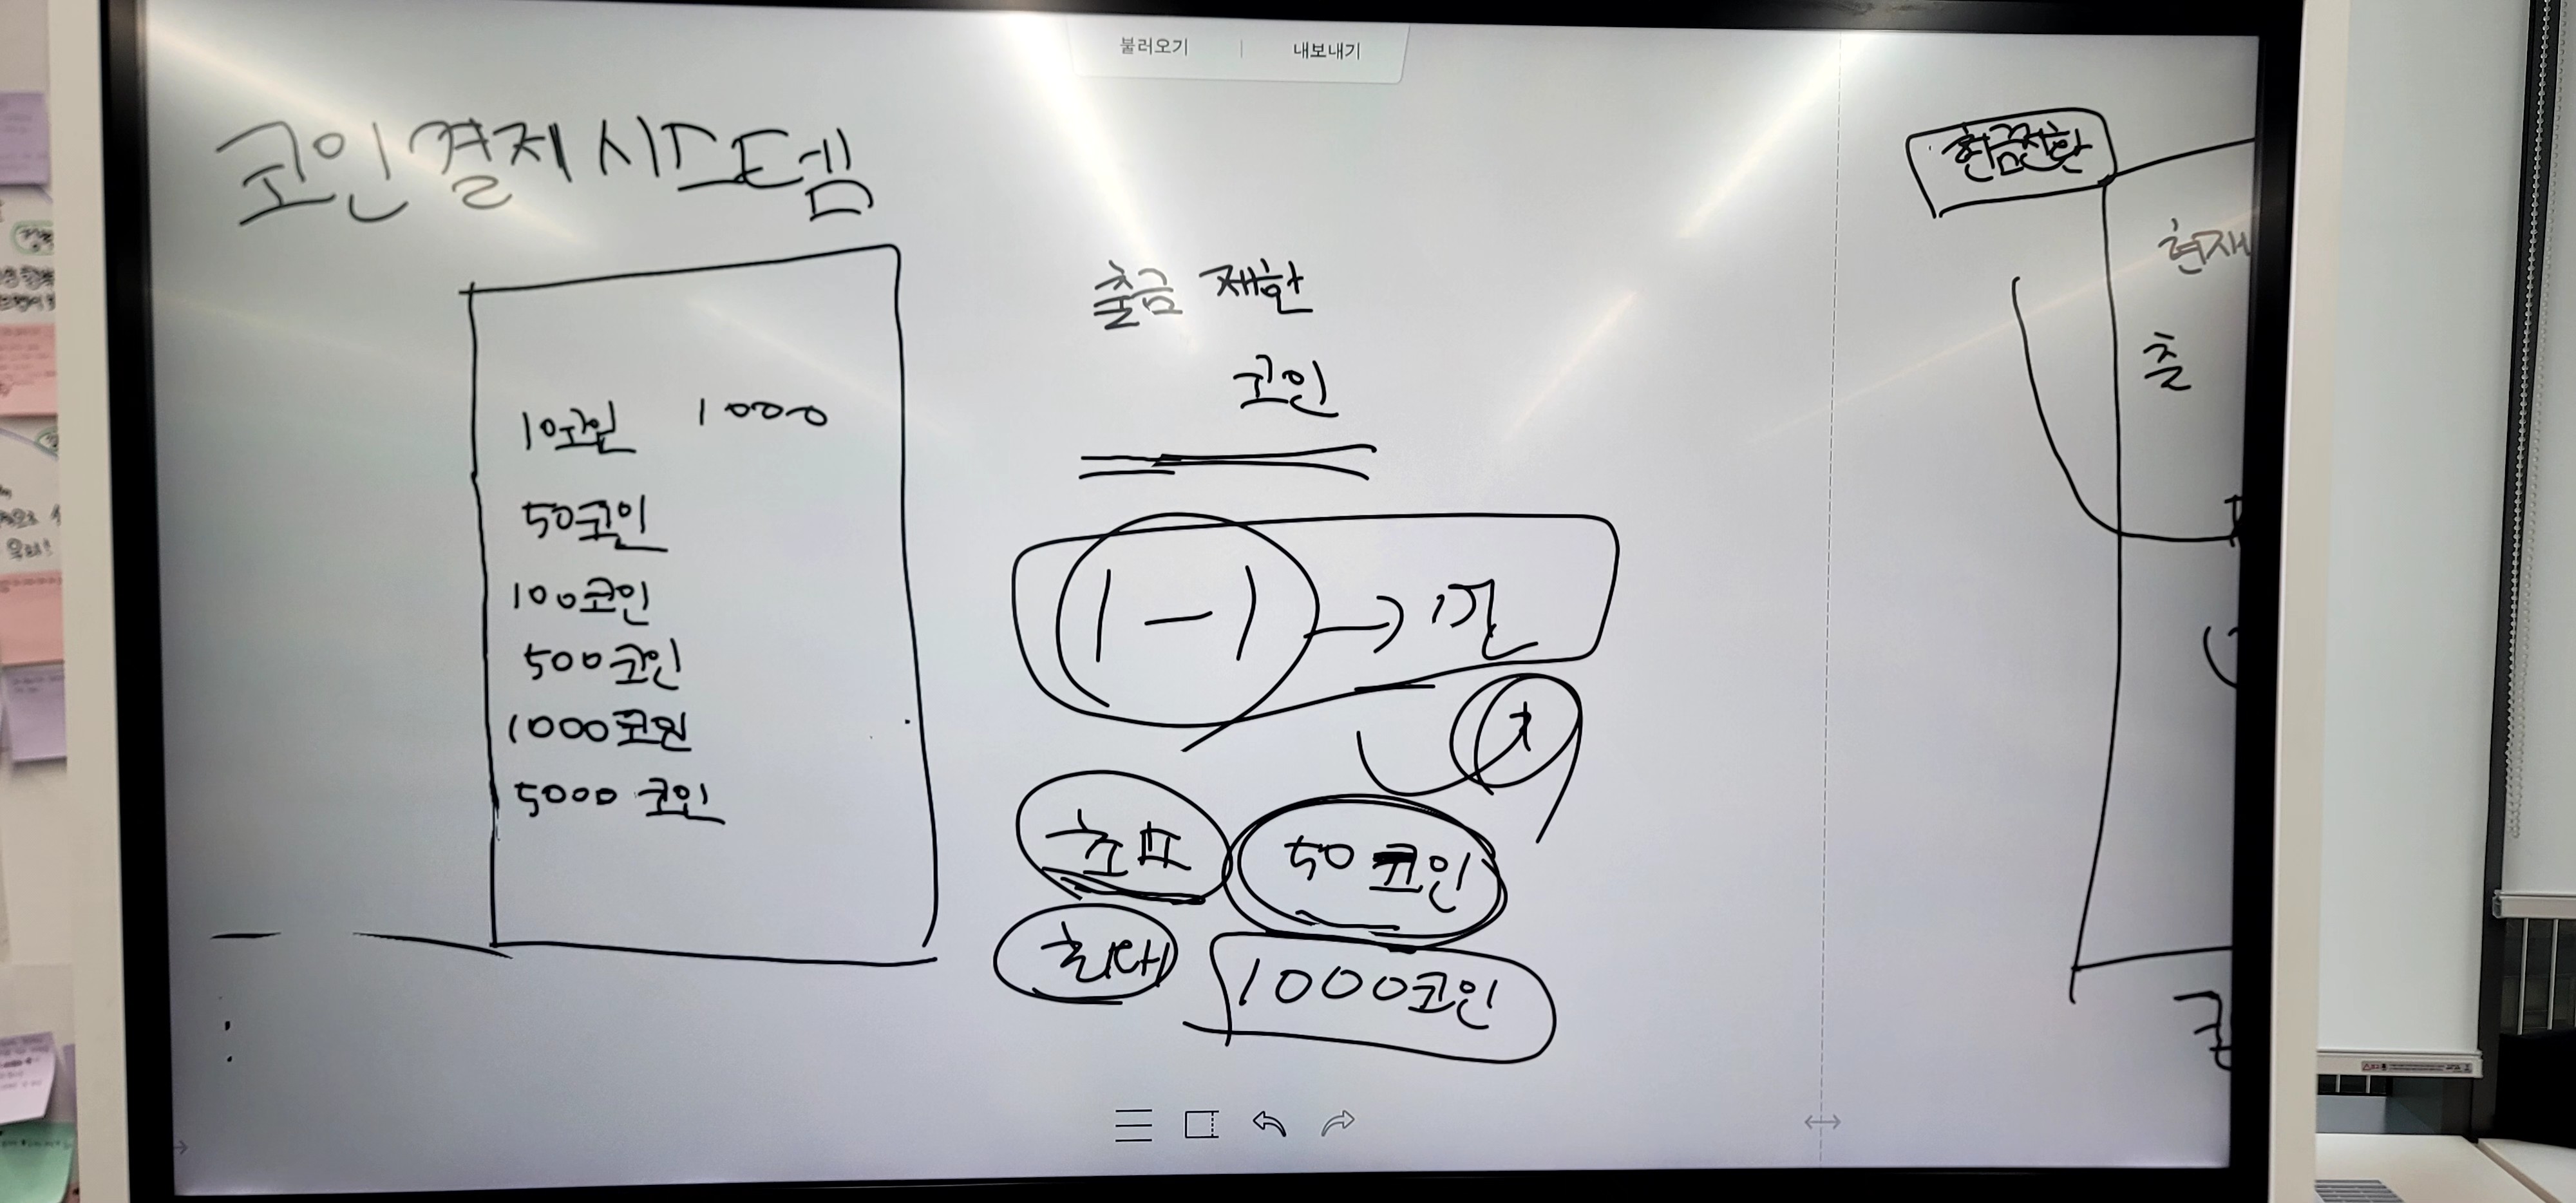 불러오기 내보내기
코인 결제 시스템
10코인 1000
50코인
100코인
500코인
1000코인
5000 코인
출금 제한
코인
1 - 1 →
50 코인
1000코인
현금전환
현재
출